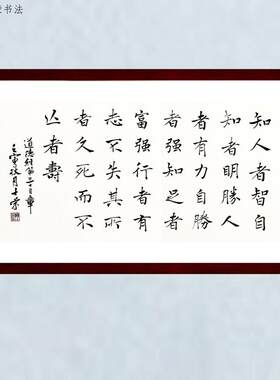 书法
知人者智自
知者明勝人
者有力自勝
者强知足者
富强行者有
志不失其所
者久死而不
亾者壽
道德經第三十三章
壬寅秋月